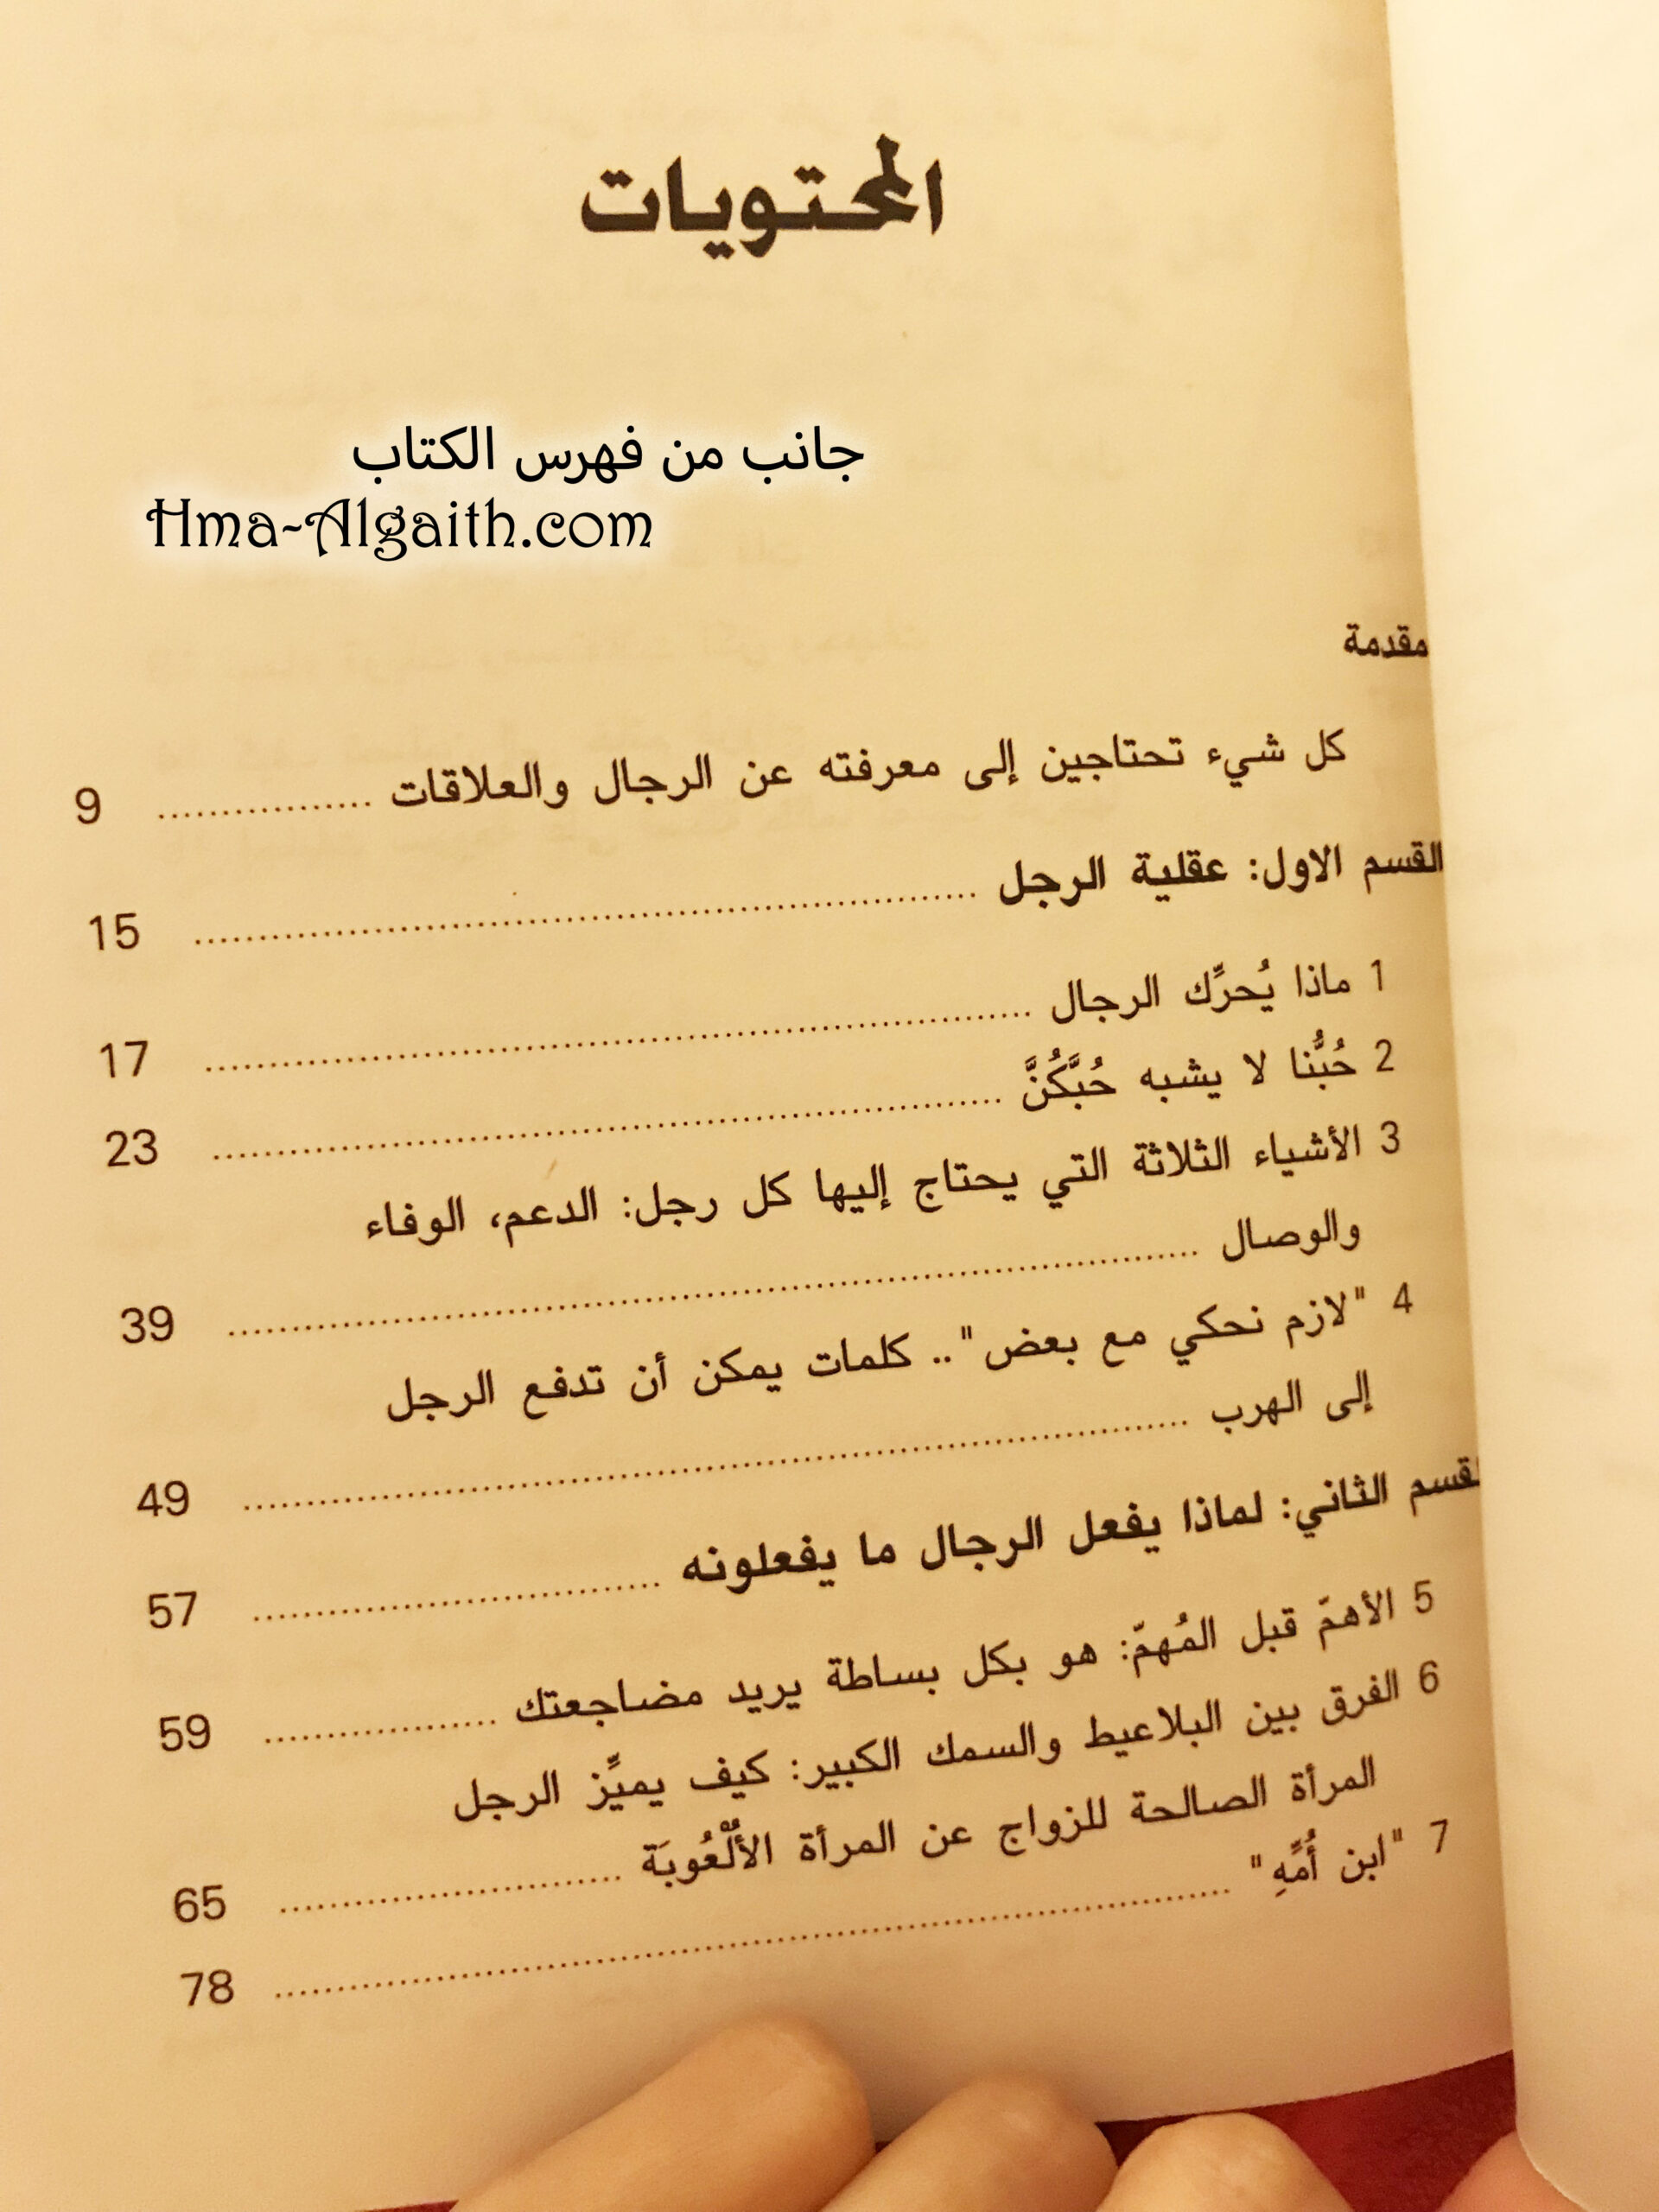 المحتويات
جانب من فهرس الكتاب
Hma-Algaith.com
مقدمة
كل شيء تحتاجين إلى معرفته عن الرجال والعلاقات ................. 9
القسم الاول: عقلية الرجل ................. 15
1 ماذا يُحرِّك الرجال ................. 17
2 حُبُّنا لا يشبه حُبَّكُنَّ ................. 23
3 الأشياء الثلاثة التي يحتاج إليها كل رجل: الدعم، الوفاء
والوصال ................. 39
4 "لازم نحكي مع بعض".. كلمات يمكن أن تدفع الرجل
إلى الهرب ................. 49
لقسم الثاني: لماذا يفعل الرجال ما يفعلونه ................. 57
5 الأهمّ قبل المُهمّ: هو بكل بساطة يريد مضاجعتك ................. 59
6 الفرق بين البلاعيط والسمك الكبير: كيف يميِّز الرجل
المرأة الصالحة للزواج عن المرأة الأُلْعُوبَة ................. 65
7 "ابن أُمِّهِ" ................. 78